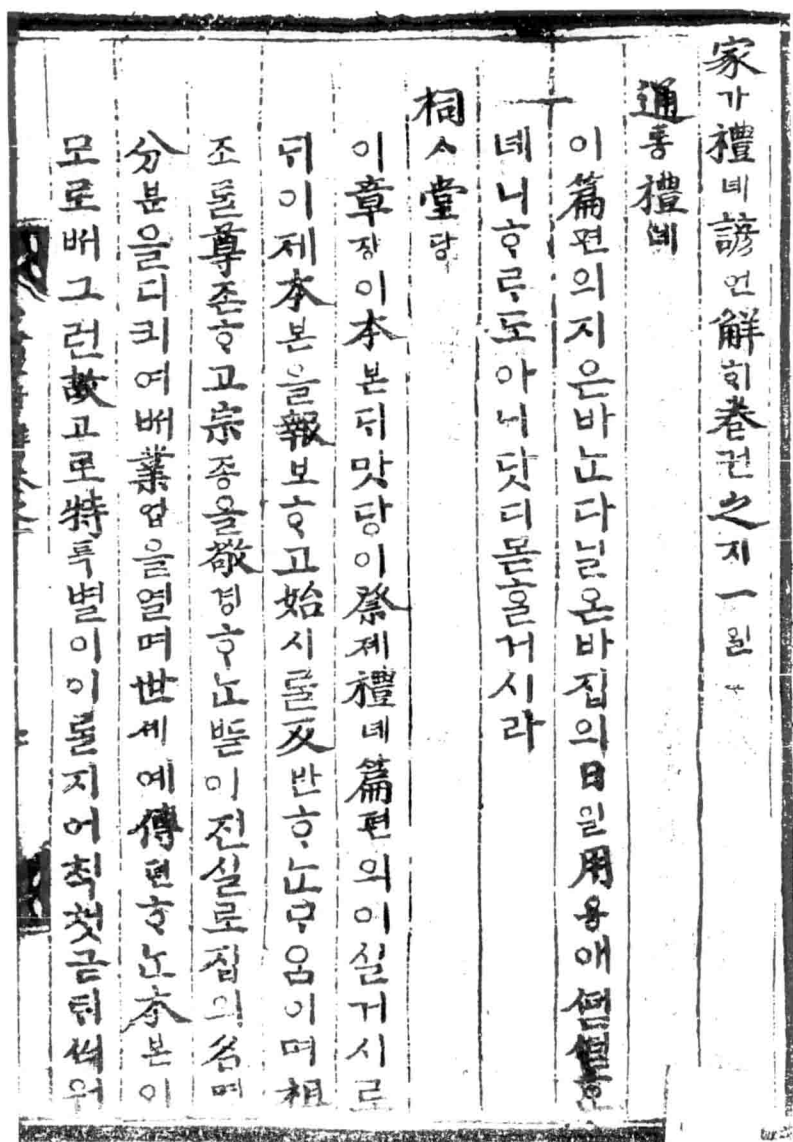 家가禮녜諺언解ᄒᆡ卷권之지一일
通통禮녜
이篇편의지은바ᄂᆞᆫ다닐온바집의日일用용애
녜니ᄒᆞᄅᆞ도아니닷디몯ᄒᆞᆯ거시라
祠ᄉᆞ堂당
이章쟝이本본ᄃᆡ맛당이祭졔禮녜篇편의이실거시로
ᄃᆡ이제本본을報보ᄒᆞ고始시ᄅᆞᆯ反반ᄒᆞᄂᆞᆫᄆᆞ음이며祖
조ᄅᆞᆯ尊존ᄒᆞ고宗종을敬경ᄒᆞᄂᆞᆫᄠᅳᆮ이진실로집의名명
分분을디킈여ᄡᅥ業업을열며世셰예傳뎐ᄒᆞᄂᆞᆫ本본이
모로ᄡᅥ그런故고로特특별이이ᄅᆞᆯ지어칙첫귿ᄃᆡᄡᅥ